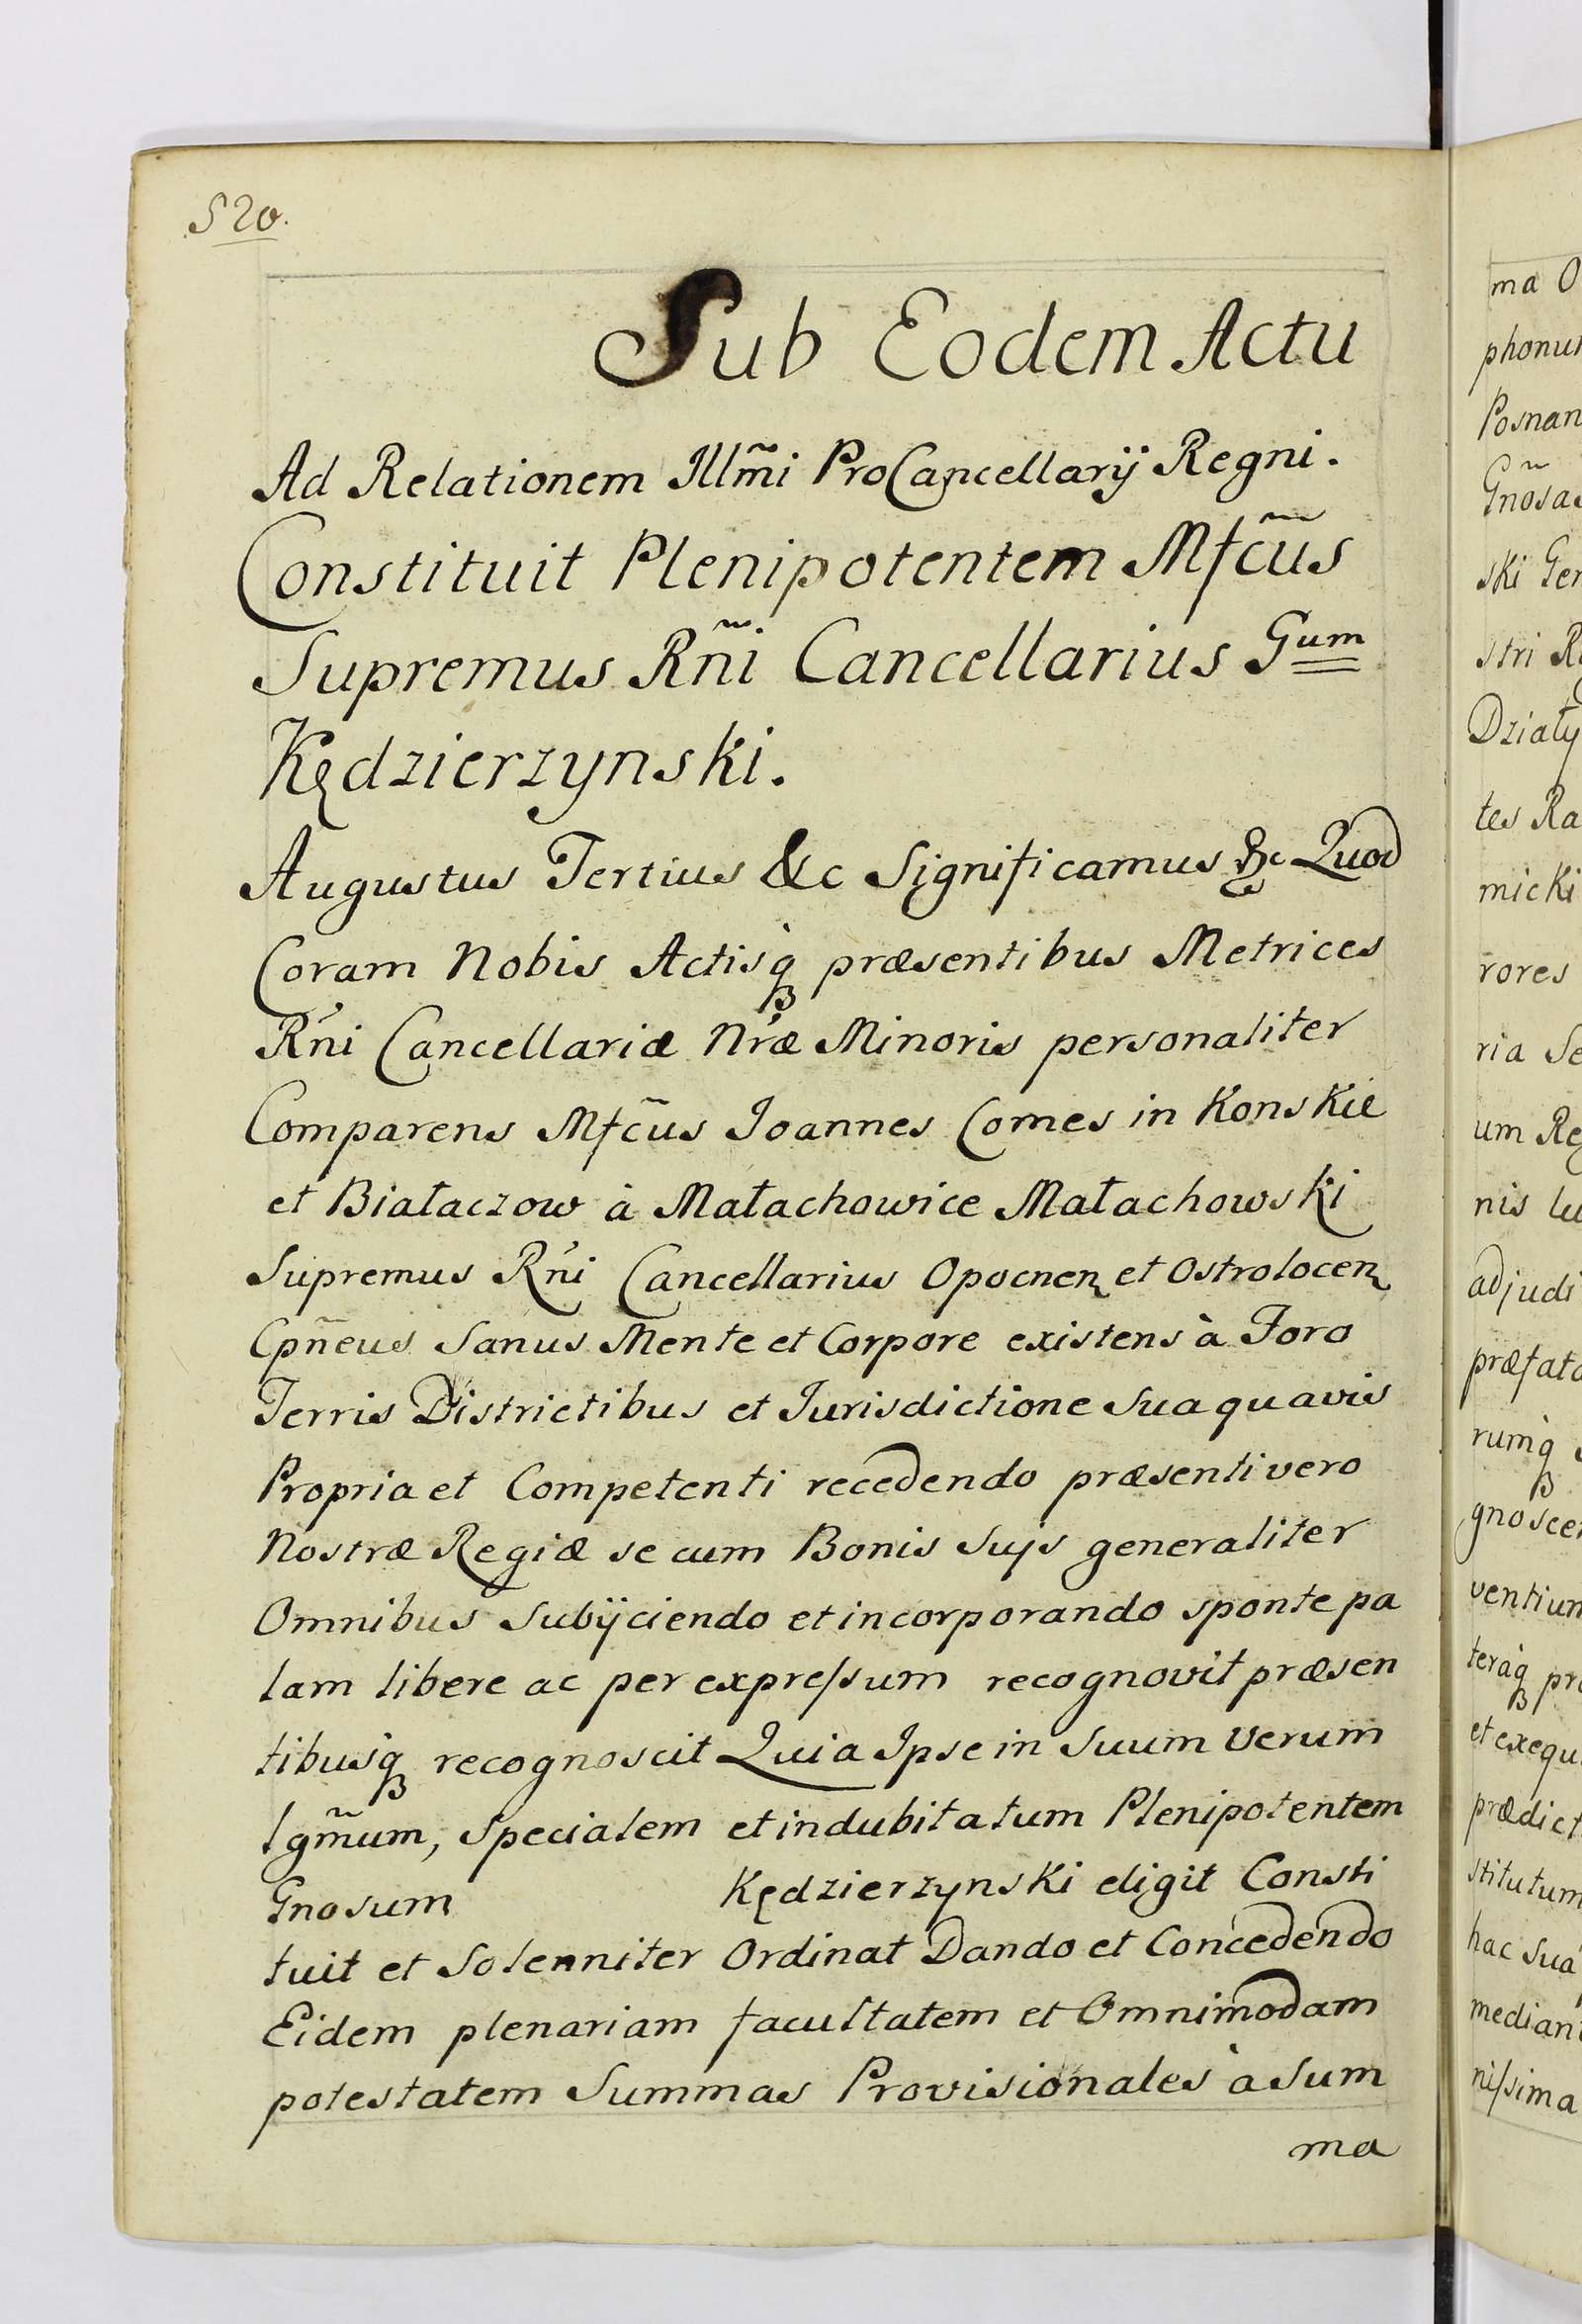 520.
Sub Eodem Actu
Ad Relationem Illm̃i ProCancellarij Regni.
Constituit Plenipotentem Mfc̃us
Supremus Rñi Cancellarius Gum
Kędzierzynski.
Augustus Tertius &c Significamus &c Quod
Coram Nobis Actisq præsentibus Metrices
Rńi Cancellariæ Nŕæ Minoris personaliter
Comparens Mfc̃us Joannes Comes in Konskie
et Białaczow à Małachowice Małachowski
Supremus Rńi Cancellarius Opocnen et Ostrolocen
Cpñeus Sanus Mente et Corpore existens à Foro
Terris Districtibus et Jurisdictione Sua quavis
Propria et Competenti recedendo præsenti vero
Nostræ Regiæ se cum Bonis Suys generaliter
Omnibus Subÿciendo et incorporando sponte pa
lam libere ac per expressum recognovit præsen
tibusq recognoscit Quia Ipse in Suum Verum
lgm̃um, Specialem et indubitatum Plenipotentem
Gnosum Kędzierzynski eligit Consti
tuit et Solenniter Ordinat Dando et Concedendo
Eidem plenariam facultatem et Omnimodam
potestatem Summas Provisionales à Sum
ma
ma O
phonu
Posnan
Gñosas
ski Gen
stri R
Działy
tes Ra
micki
rores
ria Se
um Reg
nis lu
adjudi
præfato
rumq
gnosce
ventium
teraq pr
et exequ
prædict
stitutum
hac Sua
median
nissima